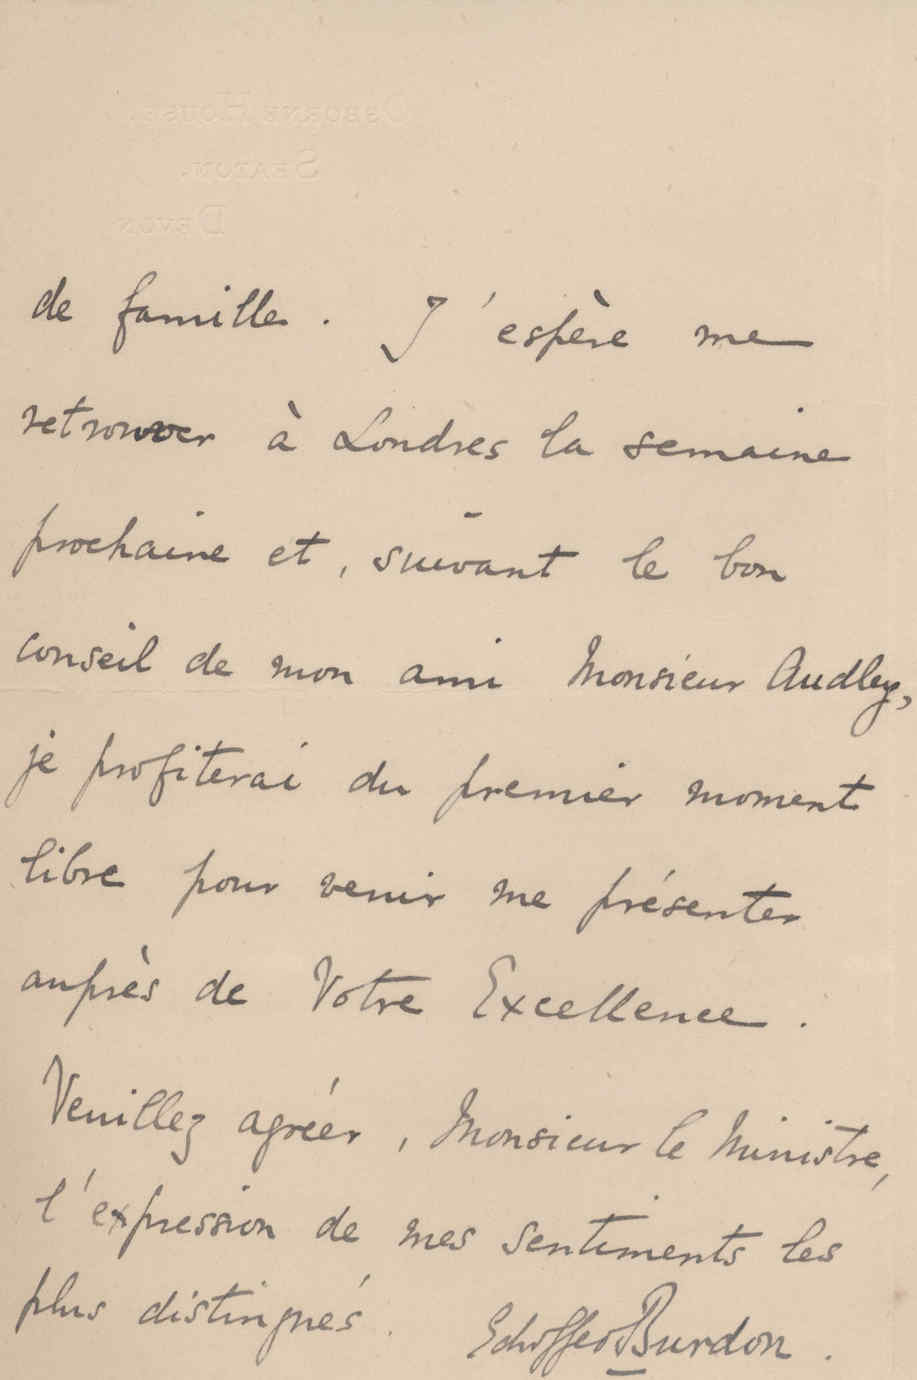 OSBORNE HOUSE,
SEATON,
DEVON
de famille. J'espère me
retrouver à Londres la semaine
prochaine et, suivant le bon
conseil de mon ami Monsieur Audley,
je profiterai du premier moment
libre pour venir me présenter
auprès de Votre Excellence.
Veuillez agréer, Monsieur le Ministre,
l'expression de mes sentiments les
plus distingués. Burdon.